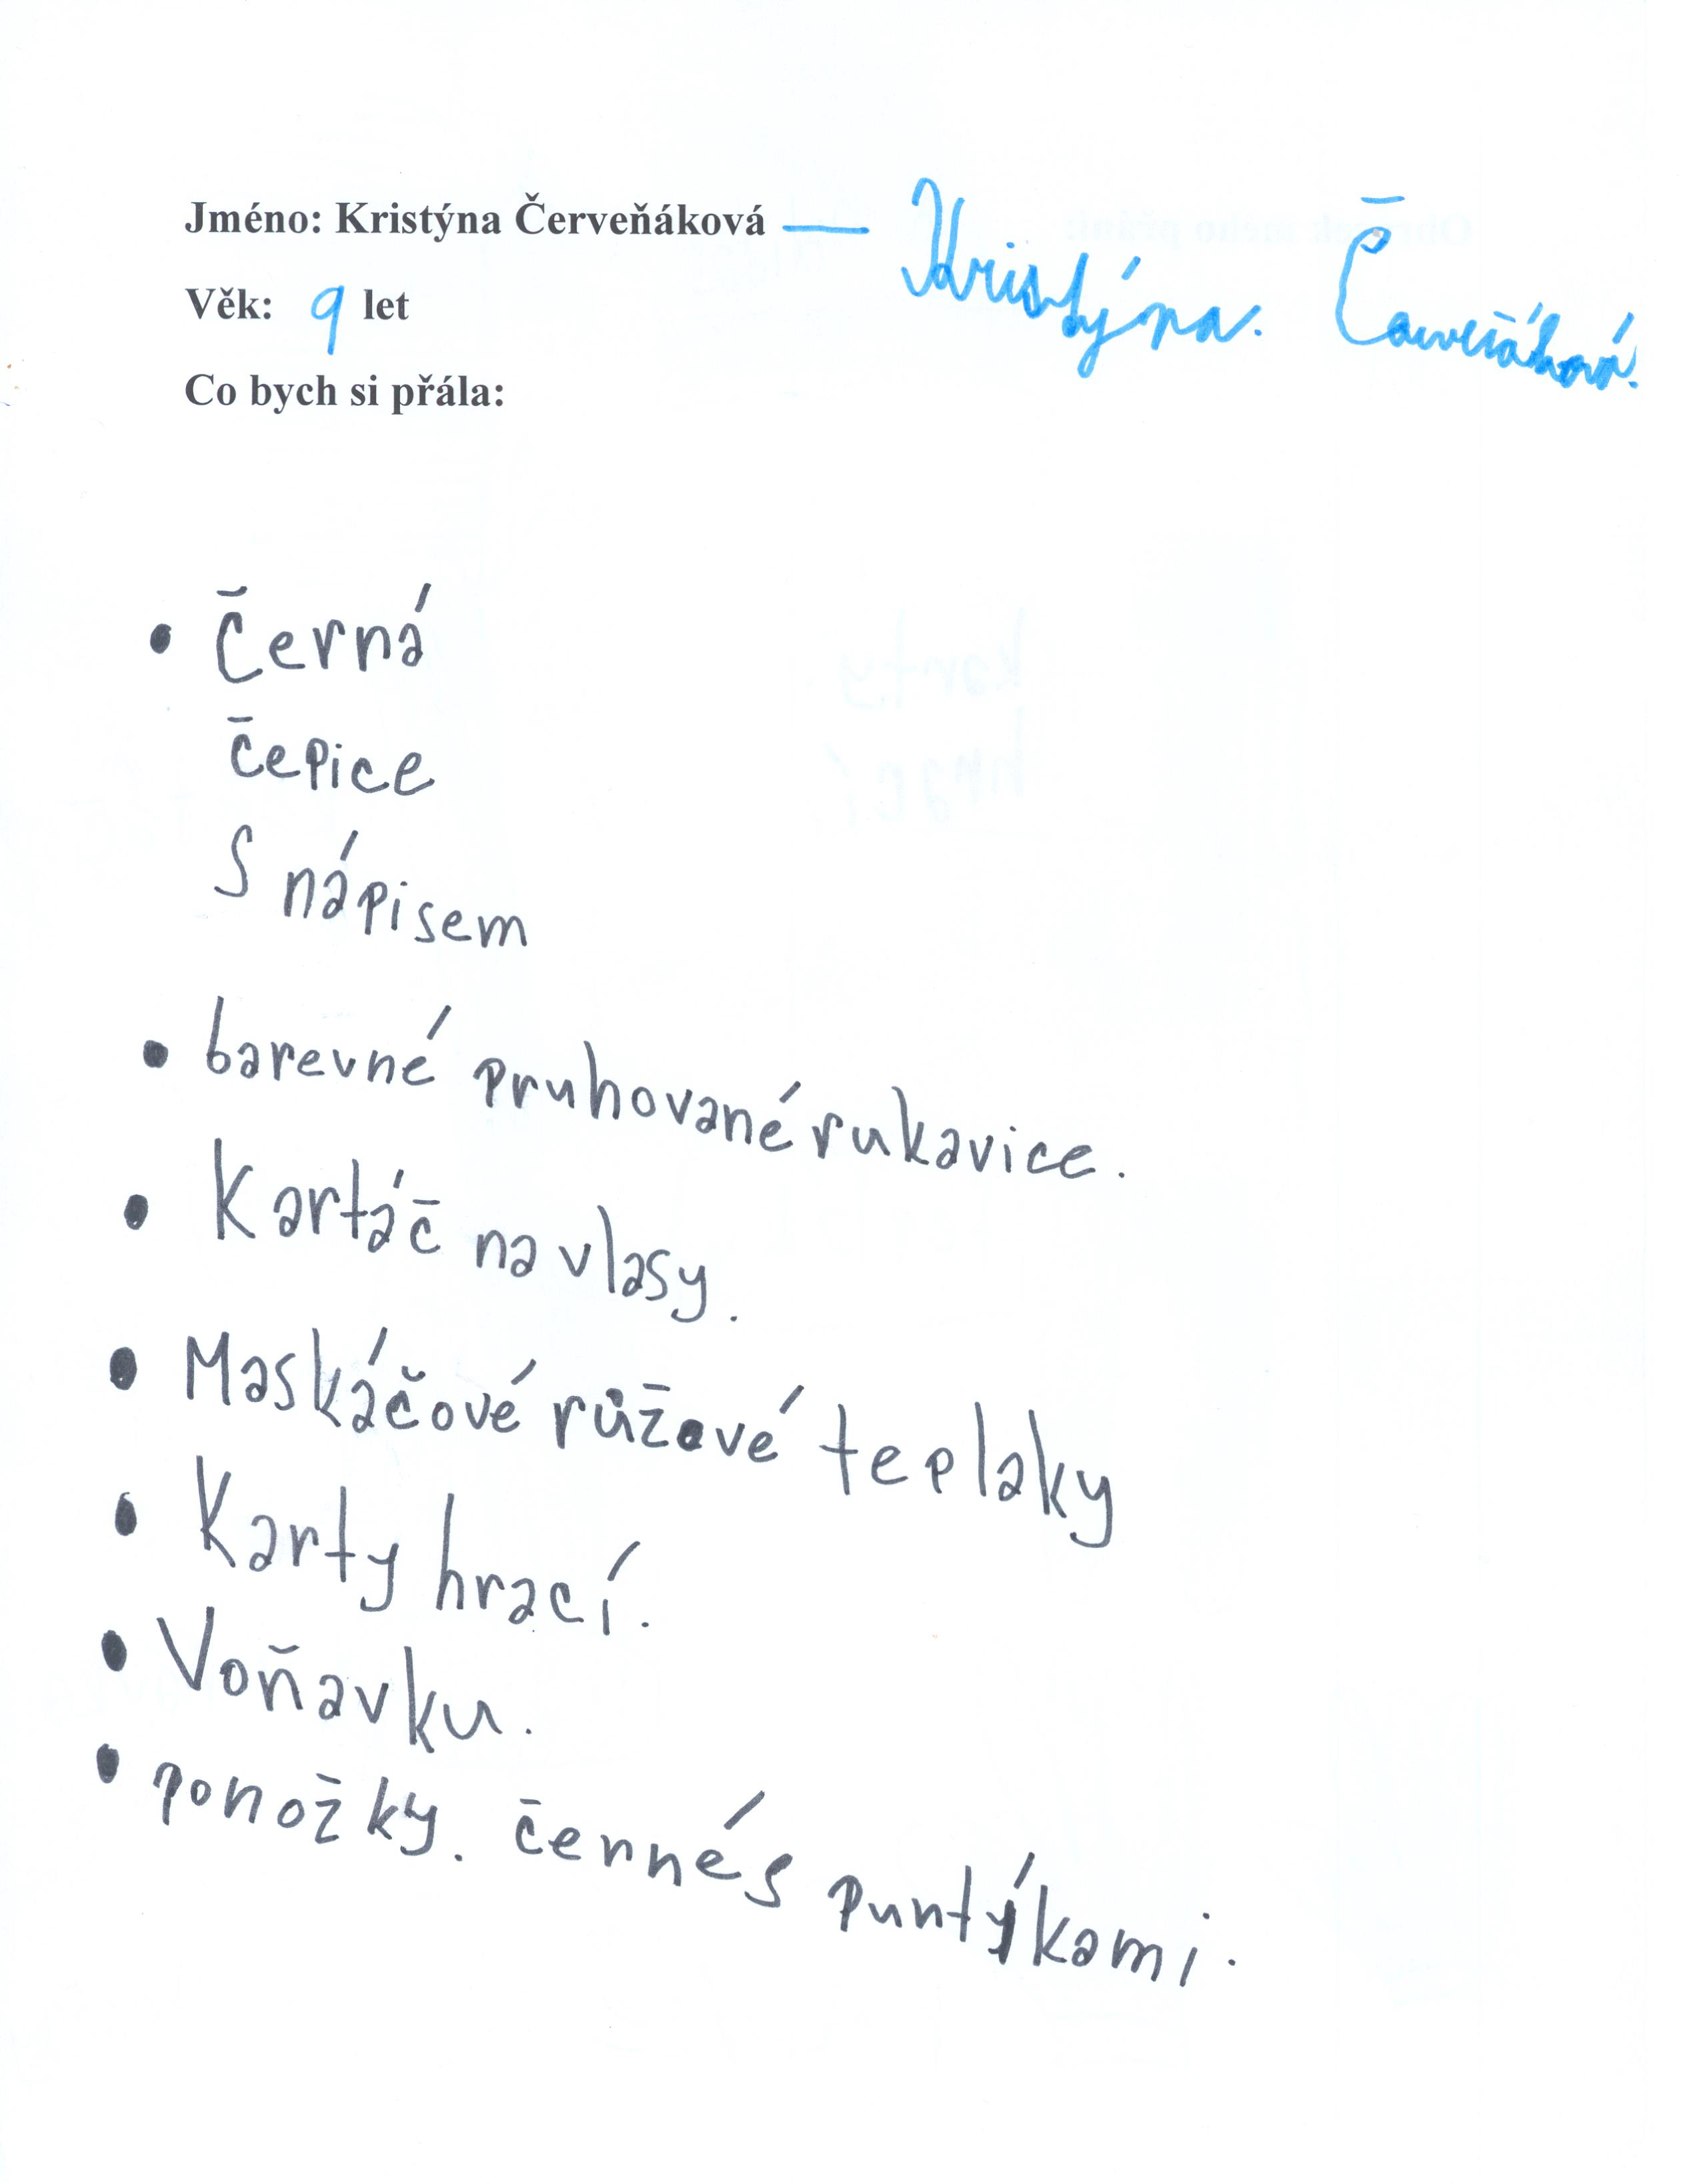 Jméno: Kristýna Červeňáková — Kristýna. Červeňáková.
Věk: 9 let
Co bych si přála:
• Černá
čepice
S nápisem
• barevné pruhované rukavice.
• Kartáč na vlasy.
• Maskáčové růžové teplaky
• Karty hrací.
• Voňavku.
• ponožky. černé s puntýkami.